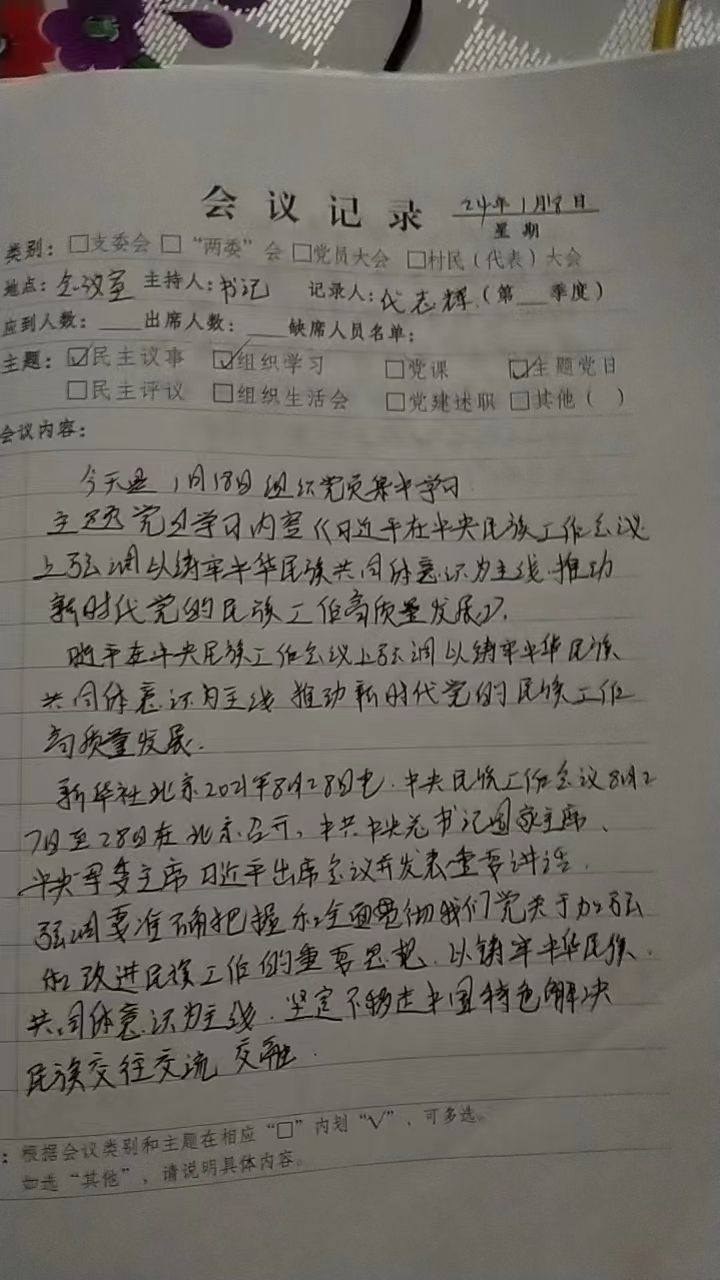 会议记录 24年1月18日
星期
类别：□支委会 □“两委”会 □党员大会 □村民（代表）大会
地点：会议室 主持人：书记 记录人：代志辉（第__季度）
应到人数：____出席人数：____缺席人员名单：
主题：☑民主议事 ☑组织学习 □党课 ☑主题党日
□民主评议 □组织生活会 □党建述职 □其他（ ）
会议内容：
今天是1月18日组织党员集中学习
主题党日学习内容《习近平在中央民族工作会议
上强调以铸牢中华民族共同体意识为主线.推动
新时代党的民族工作高质量发展》.
近平在中央民族工作会议上强调以铸牢中华民族
共同体意识为主线 推动新时代党的民族工作
高质量发展.
新华社北京2021年8月28日电.中央民族工作会议8月2
7日至28日在北京召开,中共中央总书记国家主席、
中央军委主席习近平出席会议并发表重要讲话.
强调要准确把握和全面贯彻我们党关于加强
和改进民族工作的重要思想.以铸牢中华民族.
共同体意识为主线.坚定不移走中国特色解决
民族交往交流 交融.
：根据会议类别和主题在相应“□”内划“√”，可多选。
如选“其他”，请说明具体内容。